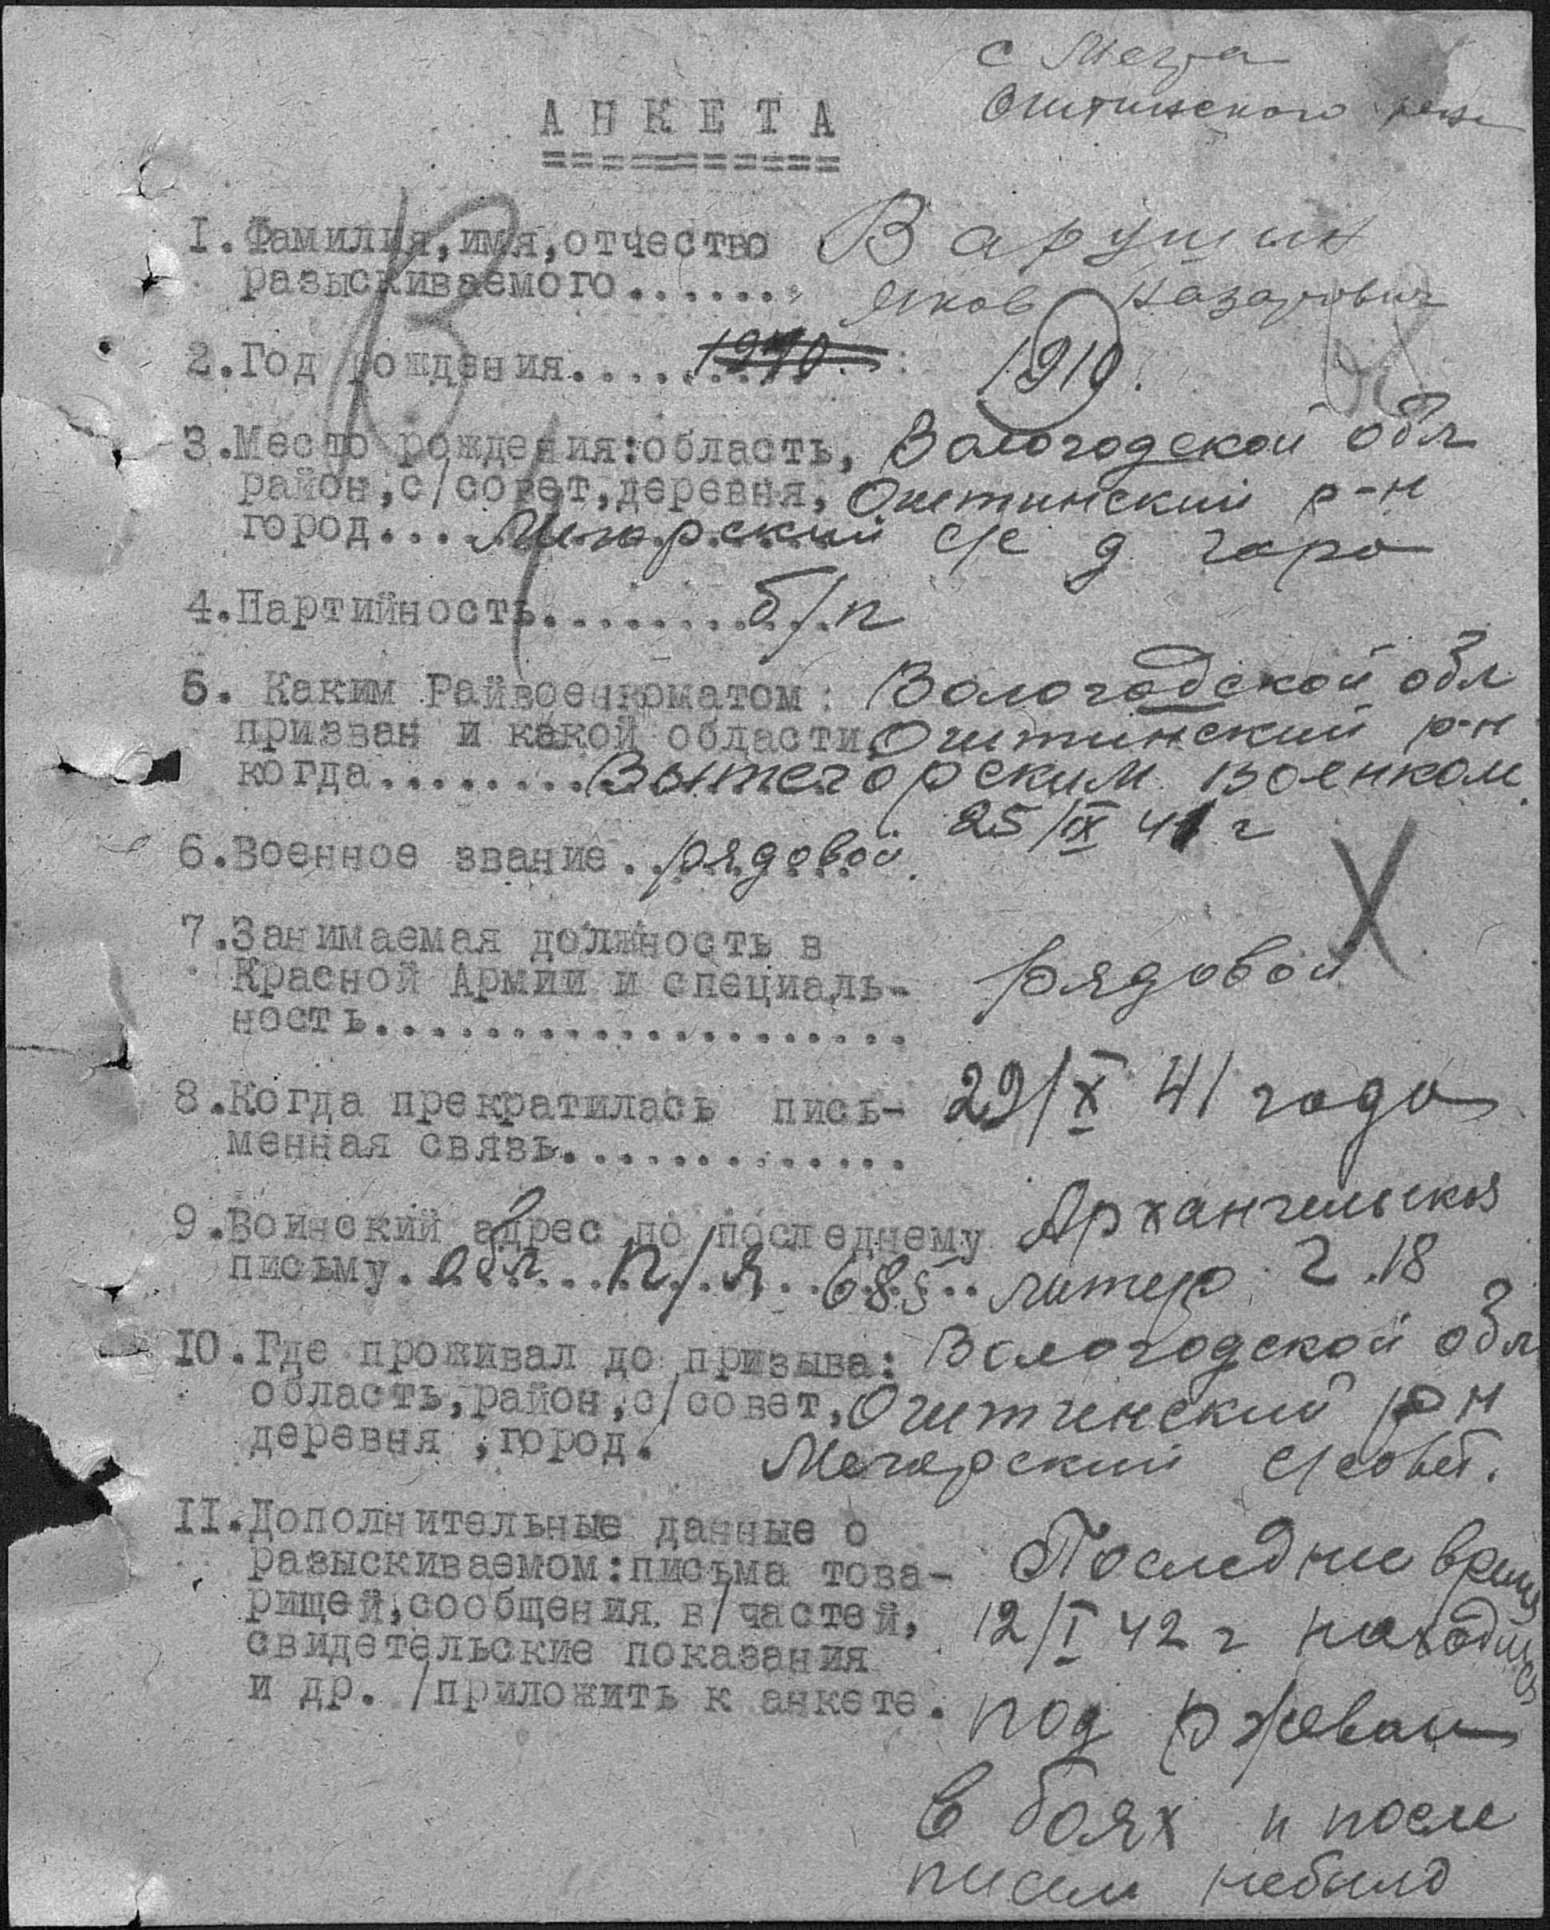 с Мегра
Оштинского
АНКЕТА
I. Фамилия, имя, отчество Варушин
разыскиваемого....... Яков Назарович
2. Год рождения.......... 1910.
3. Место рождения: область, Вологодской обл
район, с/совет, деревня, Оштинский р-н
город.... с/с д. гора
4. Партийность........... б/п
5. Каким Райвоенкоматом Вологодской обл
призван и какой области, Оштинский р-н
когда........ Вытегорским военком.
25/IX 41 г
6. Военное звание.. рядовой.
7. Занимаемая должность в
Красной Армии и специаль- рядовой
ность...................
8. Когда прекратилась пись- 29/X 41 года
менная связь.............
9. Воинский адрес по последнему Архангельская
письму. обл п/я 685 литер 2.18
10. Где проживал до призыва: Вологодской обл
область, район, с/совет, Оштинский р н
деревня, город. Мегорский с/совет.
II. Дополнительные данные о
разыскиваемом: письма това- Последнее время
рищей, сообщения в/частей, 12/I 42 г находились
свидетельские показания
и др. /приложить к анкете. под Ржевом
в боях и после
писем небыло